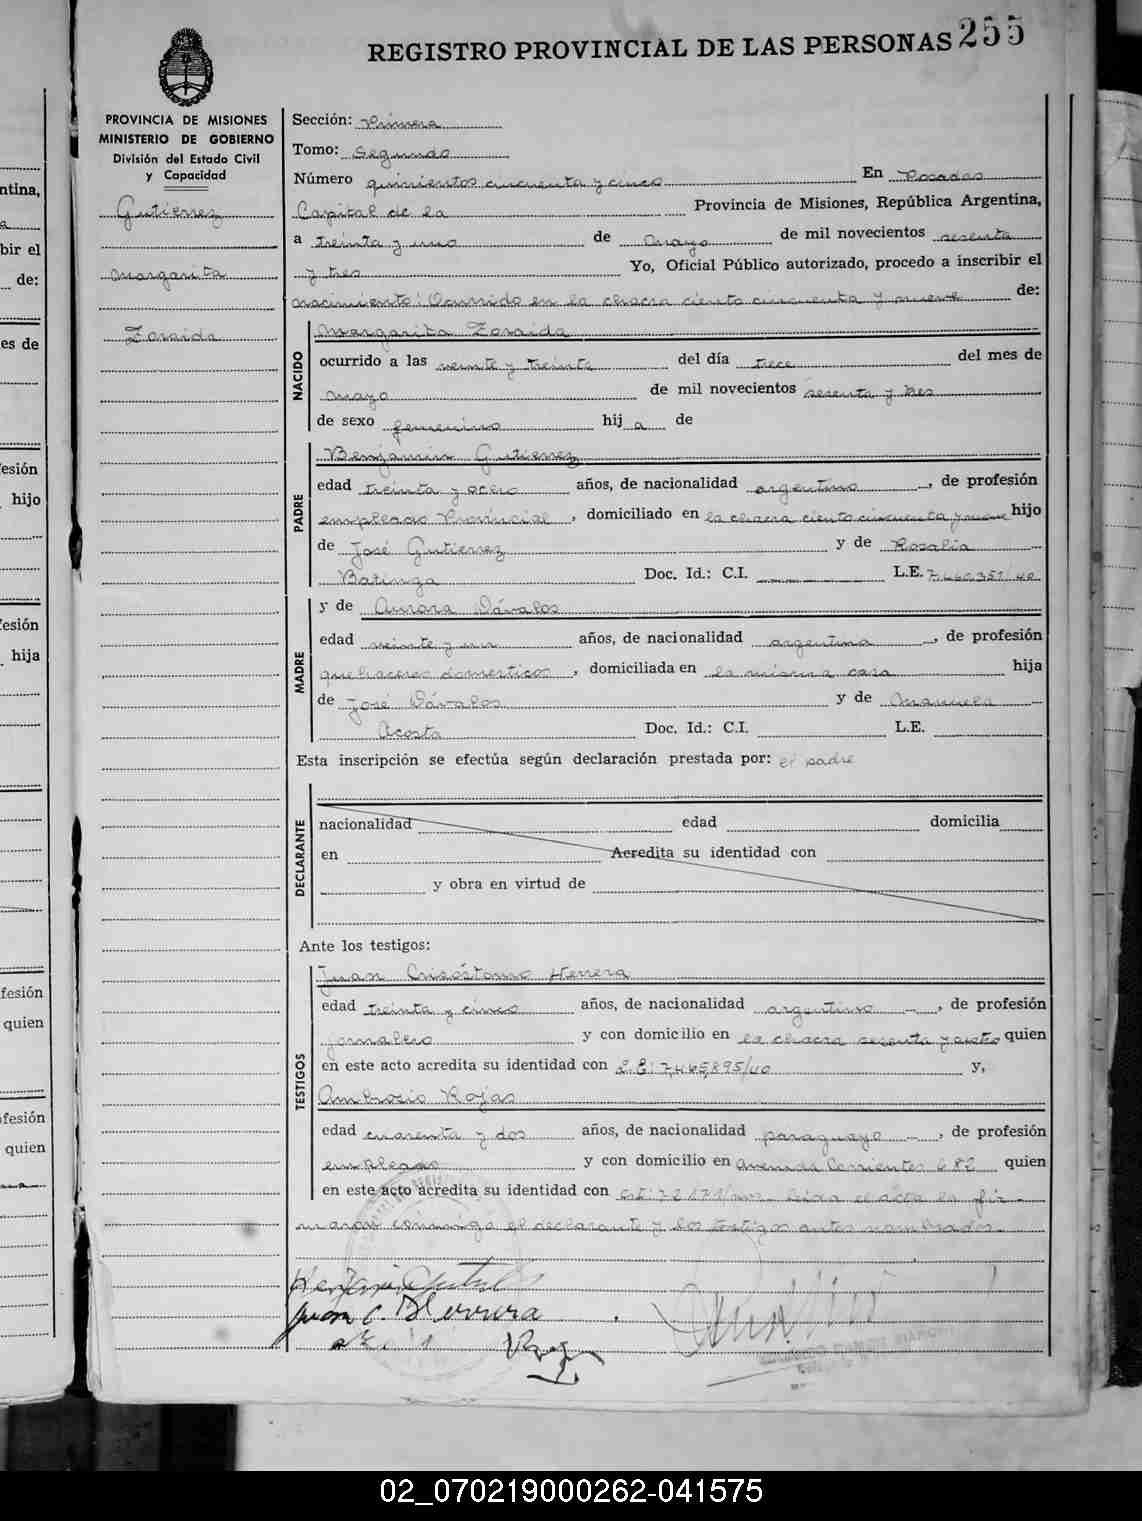 REGISTRO PROVINCIAL DE LAS PERSONAS 255
PROVINCIA DE MISIONES
MINISTERIO DE GOBIERNO
División del Estado Civil
y Capacidad
Gutiérrez
Margarita
Zoraida
Sección: Primera
Tomo: Segundo
Número quinientos cincuenta y cinco En Posadas
Capital de la Provincia de Misiones, República Argentina,
a treinta y uno de mayo de mil novecientos sesenta
y tres Yo, Oficial Público autorizado, procedo a inscribir el
nacimiento: Ocurrido en la chacra ciento cincuenta y nueve de:
NACIDO
Margarita Zoraida
ocurrido a las veinte y treinta del día trece del mes de
mayo de mil novecientos sesenta y tres
de sexo femenino hij a de
PADRE
Benjamin Gutierrez
edad treinta y ocho años, de nacionalidad argentino, de profesión
empleado Provincial, domiciliado en la chacra ciento cincuenta y nueve hijo
de José Gutierrez y de Rosalía
Batinga Doc. Id.: C.I. L.E. 7.460.351/40
MADRE
y de Aurora Dávalos
edad veinte y un años, de nacionalidad argentina, de profesión
quehaceres domesticos, domiciliada en la misma casa hija
de José Dávalos y de Manuela
Acosta Doc. Id.: C.I. L.E.
Esta inscripción se efectúa según declaración prestada por: el padre
DECLARANTE
nacionalidad edad domicilia
en Acredita su identidad con
y obra en virtud de
Ante los testigos:
TESTIGOS
Juan Crisóstomo Herrera
edad treinta y cinco años, de nacionalidad argentino, de profesión
jornalero y con domicilio en la chacra sesenta y quien
en este acto acredita su identidad con L.E: 7.465.895/40 y,
Ambrosio Rojas
edad cuarenta y dos años, de nacionalidad paraguayo, de profesión
empleado y con domicilio en Avenida Corrientes 682 quien
en este acto acredita su identidad con leída el acta la fir-
maron conmigo el declarante y los testigos antes nombrados.
Juan C. Herrera
ntina,
bir el
de:
es de
fesión
hijo
fesión
hija
fesión
quien
fesión
quien
02_070219000262-041575